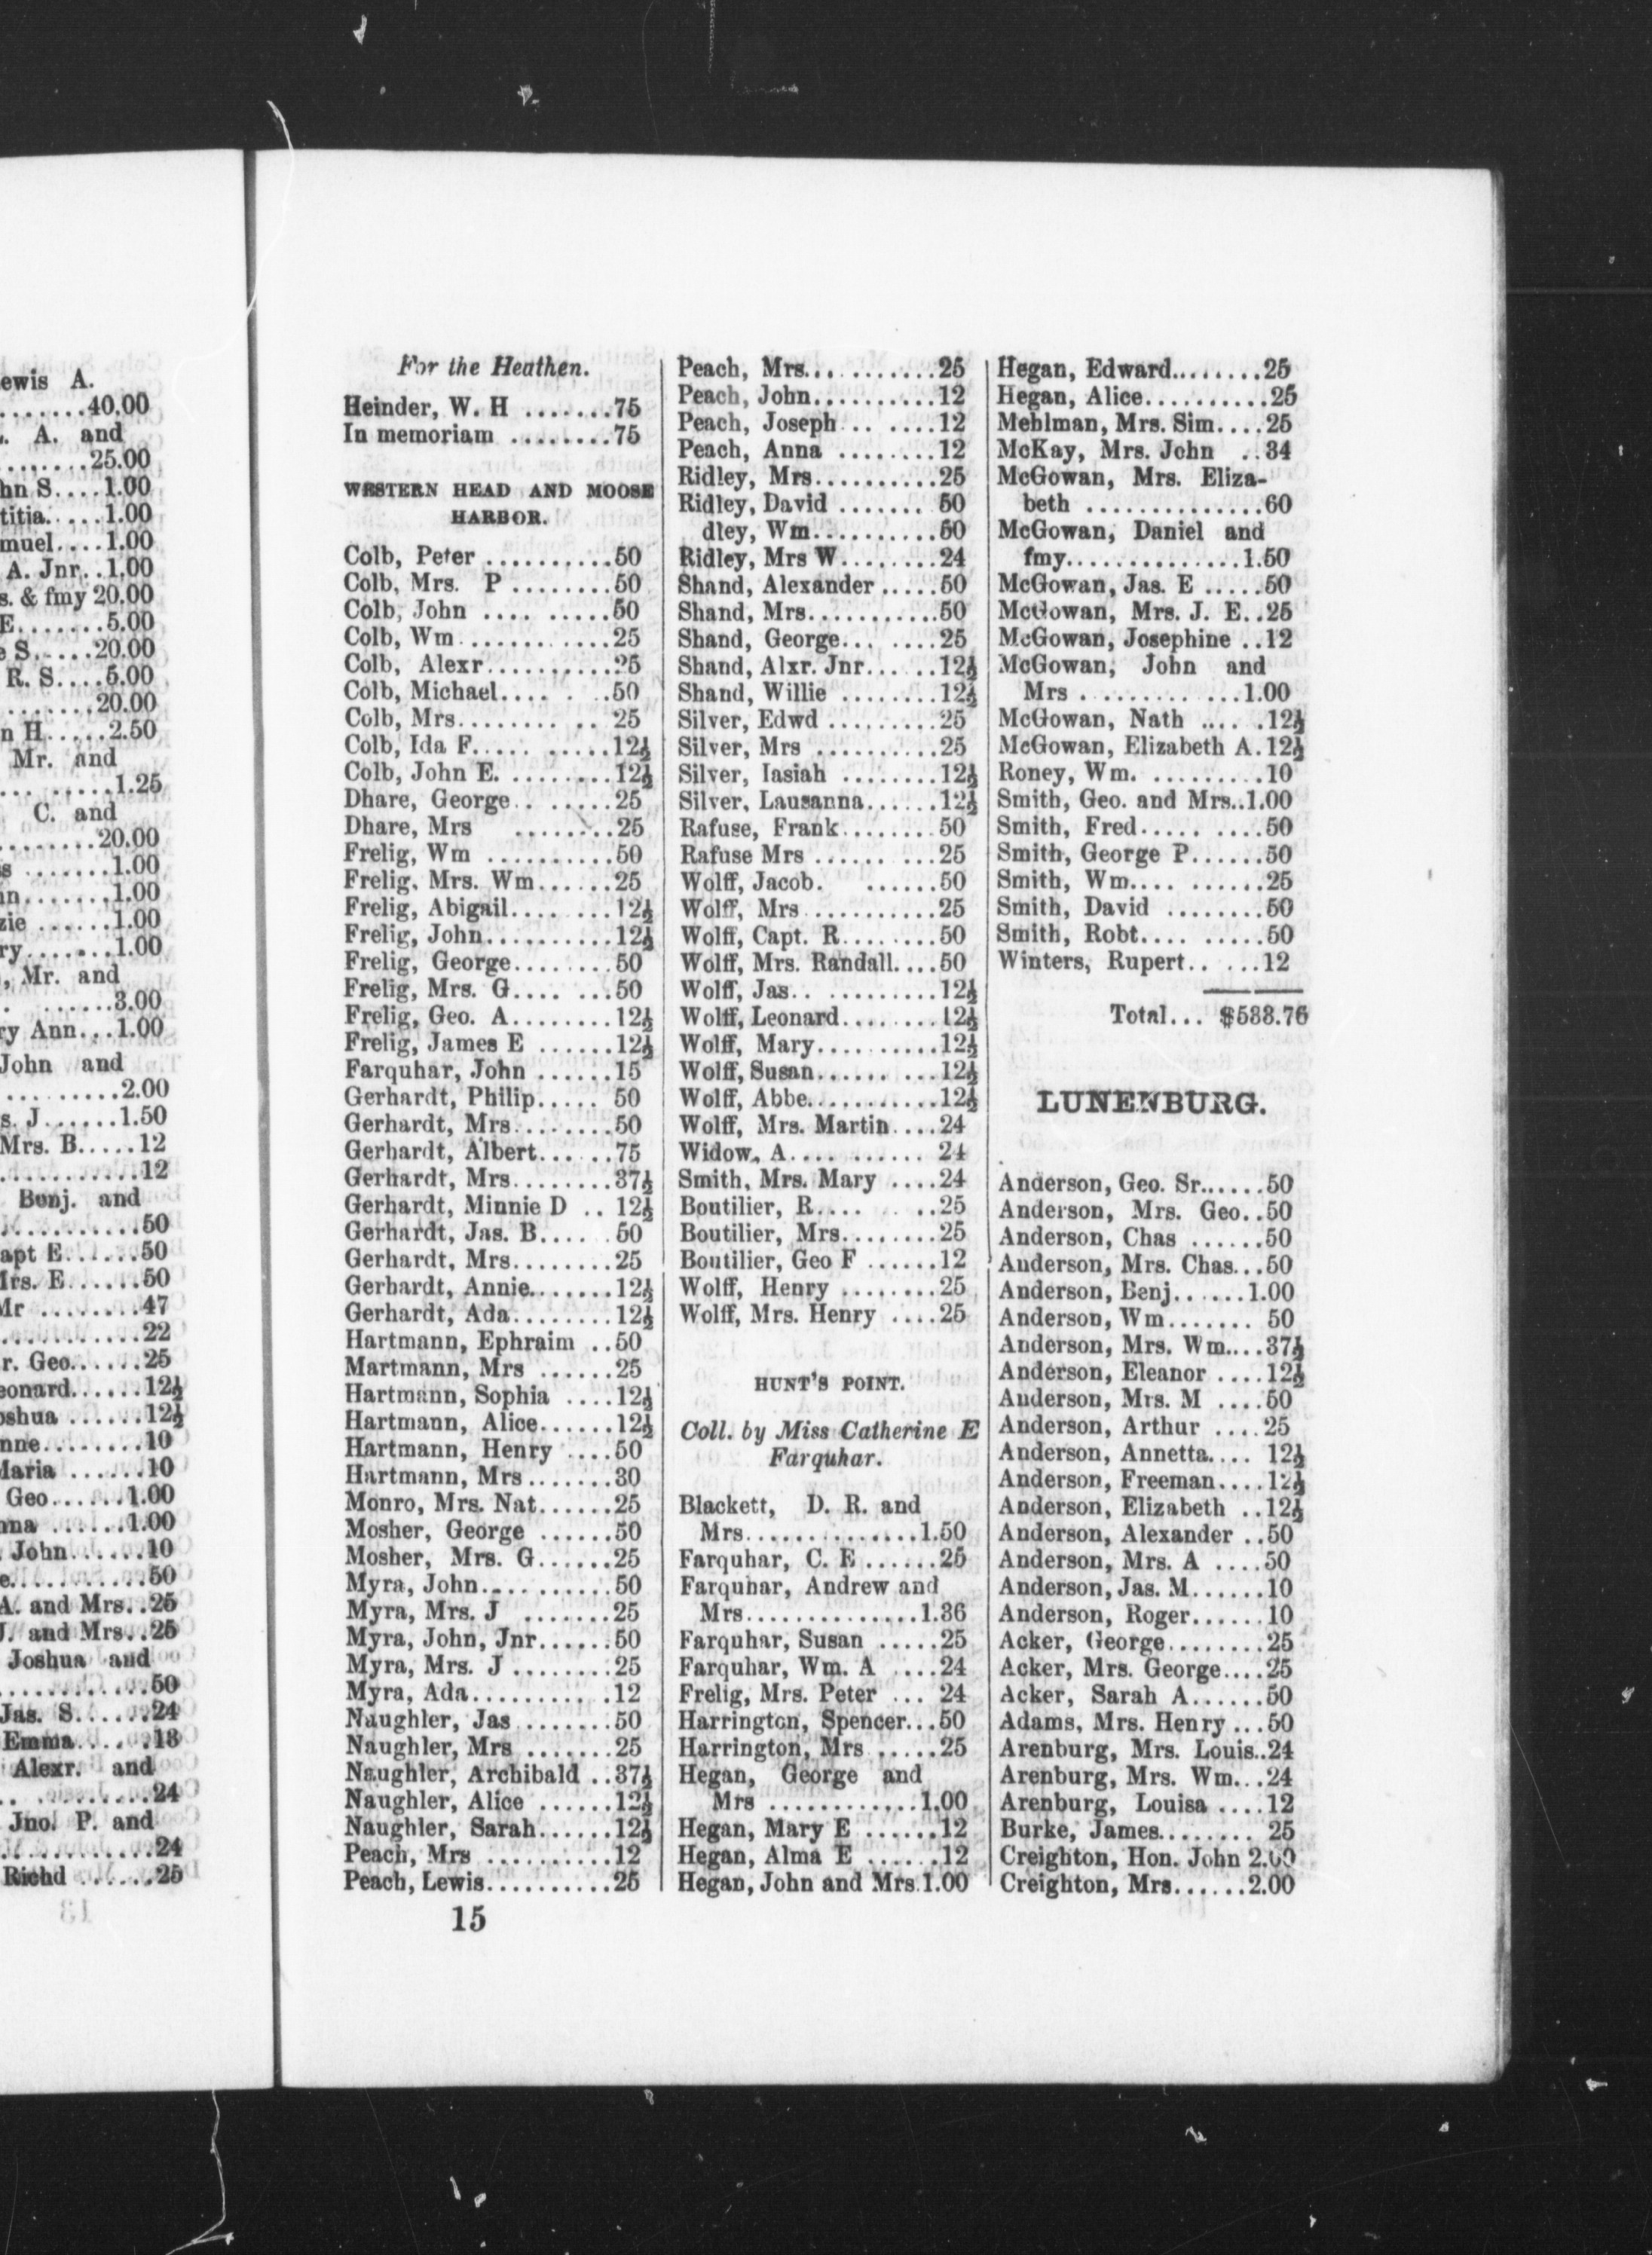 ewis A.
.......40.00
. A. and
........25.00
hn S....1.00
titia.....1.00
muel....1.00
A. Jnr..1.00
s. & fmy 20.00
E.......5.00
e S.....20.00
R. S....5.00
........20.00
n H.....2.50
Mr. and
... .....1.25
C. and
........20.00
s .......1.00
nn.......1.00
zie ......1.00
ry.......1.00
, Mr. and
. .......3.00
ry Ann...1.00
John and
..........2.00
s. J......1.50
Mrs. B.....12
............12
Benj. and
............50
apt E......50
Mrs. E......50
Mr ........47
...........22
r. Geo......25
eonard......12½
oshua ......12½
nne........10
Maria ......10
Geo......1.00
nna ......1.00
John......10
e...........50
A. and Mrs..25
J. and Mrs..25
Joshua and
............50
Jas. S......24
Emma......13
Alexr. and
.. .........24
Jno. P. and
............24
Richd ......25
For the Heathen.
Heinder, W. H .......75
In memoriam ........75
WESTERN HEAD AND MOOSE
HARBOR.
Colb, Peter ..........50
Colb, Mrs. P ........50
Colb, John .... ......50
Colb, Wm............25
Colb, Alexr..........25
Colb, Michael.... . ..50
Colb, Mrs........ .. 25
Colb, Ida F..... .....12½
Colb, John E. ........12½
Dhare, George.. ......25
Dhare, Mrs ........25
Frelig, Wm ..........50
Frelig, Mrs. Wm......25
Frelig, Abigail.... ...12½
Frelig, John..........12½
Frelig, George........50
Frelig, Mrs. G.... ...50
Frelig, Geo. A........12½
Frelig, James E ......12½
Farquhar, John ......15
Gerhardt, Philip..... 50
Gerhardt, Mrs........50
Gerhardt, Albert......75
Gerhardt, Mrs........37½
Gerhardt, Minnie D .. 12½
Gerhardt, Jas. B.... . 50
Gerhardt, Mrs........25
Gerhardt, Annie.......12½
Gerhardt, Ada........12½
Hartmann, Ephraim ..50
Martmann, Mrs ......25
Hartmann, Sophia ....12½
Hartmann, Alice......12½
Hartmann, Henry ....50
Hartmann, Mrs.......30
Monro, Mrs. Nat......25
Mosher, George ......50
Mosher, Mrs. G......25
Myra, John...........50
Myra, Mrs. J .......25
Myra, John, Jnr......50
Myra, Mrs. J ........25
Myra, Ada...........12
Naughler, Jas ........50
Naughler, Mrs .......25
Naughler, Archibald ..37½
Naughler, Alice ......12½
Naughler, Sarah......12½
Peach, Mrs ..........12
Peach, Lewis..........25
15
Peach, Mrs...........25
Peach, John..........12
Peach, Joseph... .....12
Peach, Anna ........12
Ridley, Mrs..........25
Ridley, David ....... 50
dley, Wm..........50
Ridley, Mrs W........24
Shand, Alexander .....50
Shand, Mrs...........50
Shand, George... .....25
Shand, Alxr. Jnr......12½
Shand, Willie ........12½
Silver, Edwd .........25
Silver, Mrs ..........25
Silver, Iasiah ........12½
Silver, Lausanna......12½
Rafuse, Frank........50
Rafuse Mrs ...... ...25
Wolff, Jacob. ......50
Wolff, Mrs...........25
Wolff, Capt. R........50
Wolff, Mrs. Randall....50
Wolff, Jas.. .........12½
Wolff, Leonard........12½
Wolff, Mary..........12½
Wolff, Susan...... ...12½
Wolff, Abbe...........12½
Wolff, Mrs. Martin....24
Widow, A.... ...... 24
Smith, Mrs. Mary ....24
Boutilier, R.... . ..25
Boutilier, Mrs........25
Boutilier, Geo F ......12
Wolff, Henry ........25
Wolff, Mrs. Henry ....25
HUNT'S POINT.
Coll. by Miss Catherine E
Farquhar.
Blackett, D. R. and
Mrs..............1.50
Farquhar, C. E ......25
Farquhar, Andrew and
Mrs..............1.36
Farquhar, Susan .....25
Farquhar, Wm. A ....24
Frelig, Mrs. Peter ... 24
Harrington, Spencer...50
Harrington, Mrs .....25
Hegan, George and
Mrs ............1.00
Hegan, Mary E ......12
Hegan, Alma E ......12
Hegan, John and Mrs.1.00
Hegan, Edward........25
Hegan, Alice..........25
Mehlman, Mrs. Sim....25
McKay, Mrs. John ..34
McGowan, Mrs. Eliza-
beth ..............60
McGowan, Daniel and
fmy..............1.50
McGowan, Jas. E .....50
McGowan, Mrs. J. E..25
McGowan, Josephine ..12
McGowan, John and
Mrs .............1.00
McGowan, Nath .... .12½
McGowan, Elizabeth A.12½
Roney, Wm. .........10
Smith, Geo. and Mrs..1.00
Smith, Fred..... ....50
Smith, George P......50
Smith, Wm.... ......25
Smith, David ........50
Smith, Robt.... .....50
Winters, Rupert.. ...12
Total... $533.76
LUNENBURG.
Anderson, Geo. Sr......50
Anderson, Mrs. Geo..50
Anderson, Chas ......50
Anderson, Mrs. Chas...50
Anderson, Benj......1.00
Anderson, Wm....... 50
Anderson, Mrs. Wm....37½
Anderson, Eleanor ....12½
Anderson, Mrs. M ....50
Anderson, Arthur ....25
Anderson, Annetta.... 12½
Anderson, Freeman....12½
Anderson, Elizabeth ..12½
Anderson, Alexander ..50
Anderson, Mrs. A ....50
Anderson, Jas. M......10
Anderson, Roger......10
Acker, George........25
Acker, Mrs. George....25
Acker, Sarah A......50
Adams, Mrs. Henry...50
Arenburg, Mrs. Louis..24
Arenburg, Mrs. Wm...24
Arenburg, Louisa ....12
Burke, James........ 25
Creighton, Hon. John 2.00
Creighton, Mrs......2.00